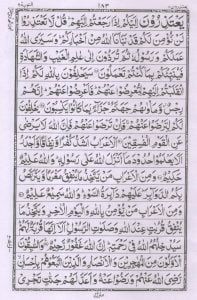 ١٨٣
يَعْتَذِرُونَ إِلَيْكُمْ إِذَا رَجَعْتُمْ إِلَيْهِمْ قُلْ لَّا تَعْتَذِرُوا
لَنْ نُّؤْمِنَ لَكُمْ قَدْ نَبَّأَنَا اللَّهُ مِنْ أَخْبَارِكُمْ وَسَيَرَى اللَّهُ
عَمَلَكُمْ وَرَسُولُهُ ثُمَّ تُرَدُّونَ إِلَىٰ عَالِمِ الْغَيْبِ وَالشَّهَادَةِ
فَيُنَبِّئُكُمْ بِمَا كُنْتُمْ تَعْمَلُونَ سَيَحْلِفُونَ بِاللَّهِ لَكُمْ إِذَا
انْقَلَبْتُمْ إِلَيْهِمْ لِتُعْرِضُوا عَنْهُمْ فَأَعْرِضُوا عَنْهُمْ إِنَّهُمْ
رِجْسٌ وَمَأْوَاهُمْ جَهَنَّمُ جَزَاءً بِمَا كَانُوا يَكْسِبُونَ يَحْلِفُونَ
لَكُمْ لِتَرْضَوْا عَنْهُمْ فَإِنْ تَرْضَوْا عَنْهُمْ فَإِنَّ اللَّهَ لَا يَرْضَىٰ
عَنِ الْقَوْمِ الْفَاسِقِينَ الْأَعْرَابُ أَشَدُّ كُفْرًا وَّنِفَاقًا وَّأَجْدَرُ
أَلَّا يَعْلَمُوا حُدُودَ مَا أَنْزَلَ اللَّهُ عَلَىٰ رَسُولِهِ وَاللَّهُ عَلِيمٌ
حَكِيمٌ وَمِنَ الْأَعْرَابِ مَنْ يَّتَّخِذُ مَا يُنْفِقُ مَغْرَمًا وَّيَتَرَبَّصُ
بِكُمُ الدَّوَائِرَ عَلَيْهِمْ دَائِرَةُ السَّوْءِ وَاللَّهُ سَمِيعٌ عَلِيمٌ
وَمِنَ الْأَعْرَابِ مَنْ يُّؤْمِنُ بِاللَّهِ وَالْيَوْمِ الْآخِرِ وَيَتَّخِذُ مَا
يُنْفِقُ قُرُبَاتٍ عِنْدَ اللَّهِ وَصَلَوَاتِ الرَّسُولِ أَلَا إِنَّهَا قُرْبَةٌ لَّهُمْ
سَيُدْخِلُهُمُ اللَّهُ فِي رَحْمَتِهِ إِنَّ اللَّهَ غَفُورٌ رَّحِيمٌ وَالسَّابِقُونَ
الْأَوَّلُونَ مِنَ الْمُهَاجِرِينَ وَالْأَنْصَارِ وَالَّذِينَ اتَّبَعُوهُمْ بِإِحْسَانٍ
رَّضِيَ اللَّهُ عَنْهُمْ وَرَضُوا عَنْهُ وَأَعَدَّ لَهُمْ جَنَّاتٍ تَجْرِي